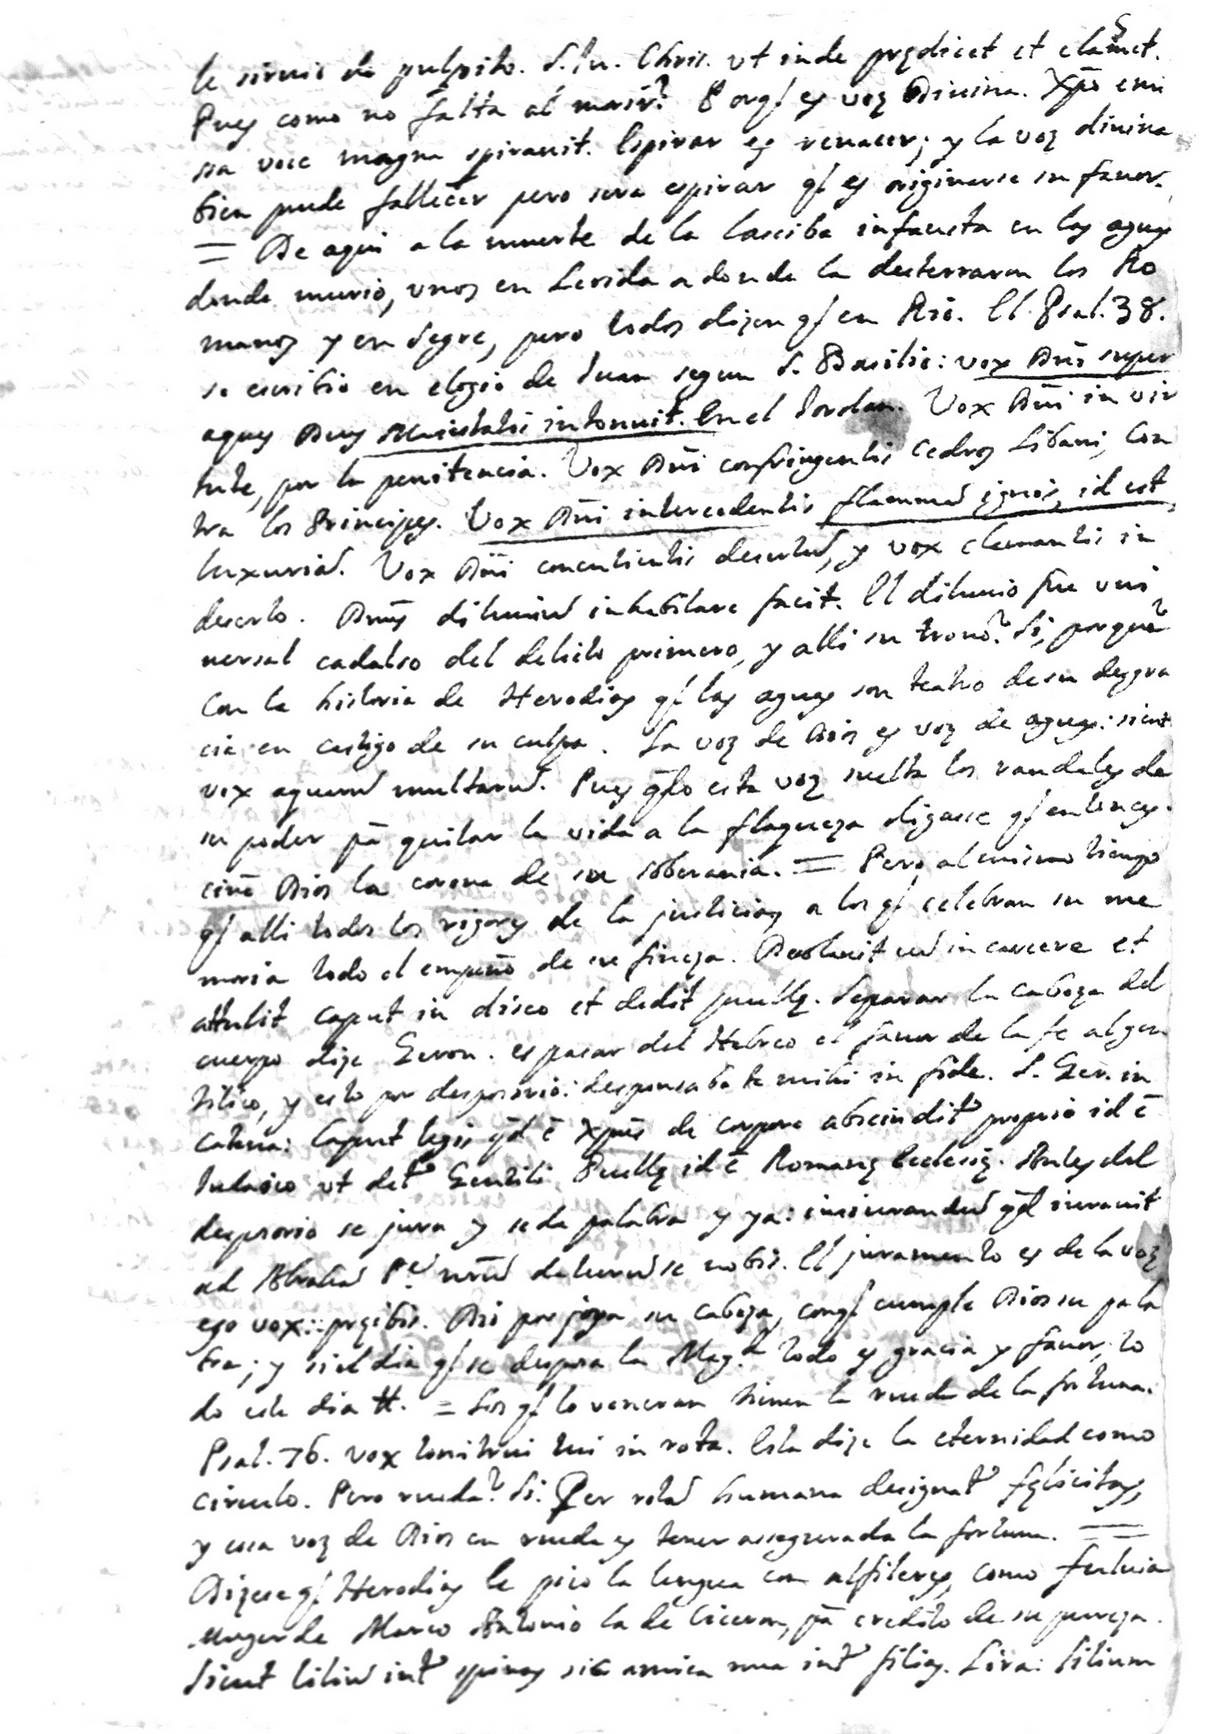 5
le siruio de pulpito. S. Ju. Chris. vt inde prędicet et clamet.
Pues como no falta al morir? Porq̃ es voz Diuina. Xp̃o emi
ssa voce magna spirauit. Espirar es renacer; y la voz diuina
bien puede fallecer pero sera espirar q̃ es originarse su fauor.
= De aqui a la muerte de la lasciba infausta en las aguas
donde murio, vnos en Lerida a donde la desterraron los Ro
manos y en Segre, pero todos dizen q̃ en Rio. El Psal. 38.
se escribio en elogio de Juan segun S. Basilio: vox Dñi super
aquas Deus Maiestatis intonuit. En el Jordan. Vox Dñi in vir
tute, por la penitencia. Vox Dñi confringentis Cedros Libani, Con
tra los Principes. Vox Dñi intercedentis flammã ignis, id est
luxuriã. Vox Dñi concutientis desertũ, y vox clamantis in
deserto. Dñs diluuiũ inhabitare facit. El diluuio fue vni
uersal cadalso del delito primero, y alli su trono? Si, porque
con la historia de Herodias q̃ las aguas son teatro de su desgra
cia en castigo de su culpa. La voz de Dios es voz de aguas: sicut
vox aquarũ multarũ. Pues qño esta voz suelta los raudales de
su poder pã quitar la vida a la flaqueza digasse q̃ entonces
ciñe Dios la corona de su soberania. = Pero al mismo tiempo
q̃ alli todos los rigores de la justicia, a los q̃ celebran su me
moria todo el empeño de su fineza. Decollauit eũ in carcere et
attulit caput in disco et dedit puellę. Separar la cabeza del
cuerpo dize Geron. es pasar del Hebreo el fauor de la fe al gen
tilico, y esto por desposorio: desponsabo te mihi in fide. S. Ger. in
Catena: Caput legis qd ẽ Xpũs de corpore absciditr proprio id ẽ
Judaico vt detr Gentili Puellę id ẽ Romanę Ecclesię. Antes del
desposorio se jura y se da palabra y ya: iusiurandũ qd iurauit
ad Abrahã Pẽ nr̃ũ daturũ se nobis. El juramento es de la voz
ego vox: pręibis. Dio por joya su cabeza, con q̃ cumple Dios su pala
bra; y si el dia q̃ se desposa la Magd. todo es gracia y fauor, to
do este dia #. = Los q̃ lo veneran tienen la rueda de la fortuna.
Psal. 76. vox tonitrui tui in rota. Esta dize la eternidad como
circulo. Pero rueda? Si. Per rotã humana designatr fęlicitas,
y essa voz de Dios en rueda es tener assegurada la fortuna. =
Dizese q̃ Herodias le pico la lengua con alfileres, como Fuluia
muger de Marco Antonio la de Ciceron, pã credito de su pureza.
Sicut liliũ intr spinas sic amica mea intr filias. Lira: lilium